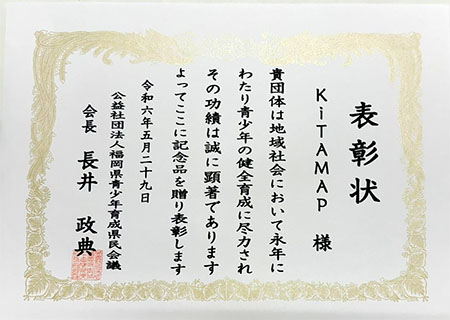 表彰状
KiTAMAP 様
貴団体は地域社会において永年に
わたり青少年の健全育成に尽力され
その功績は誠に顕著であります
よってここに記念品を贈り表彰します
令和六年五月二十九日
公益社団法人福岡県青少年育成県民会議
会長 長井 政典